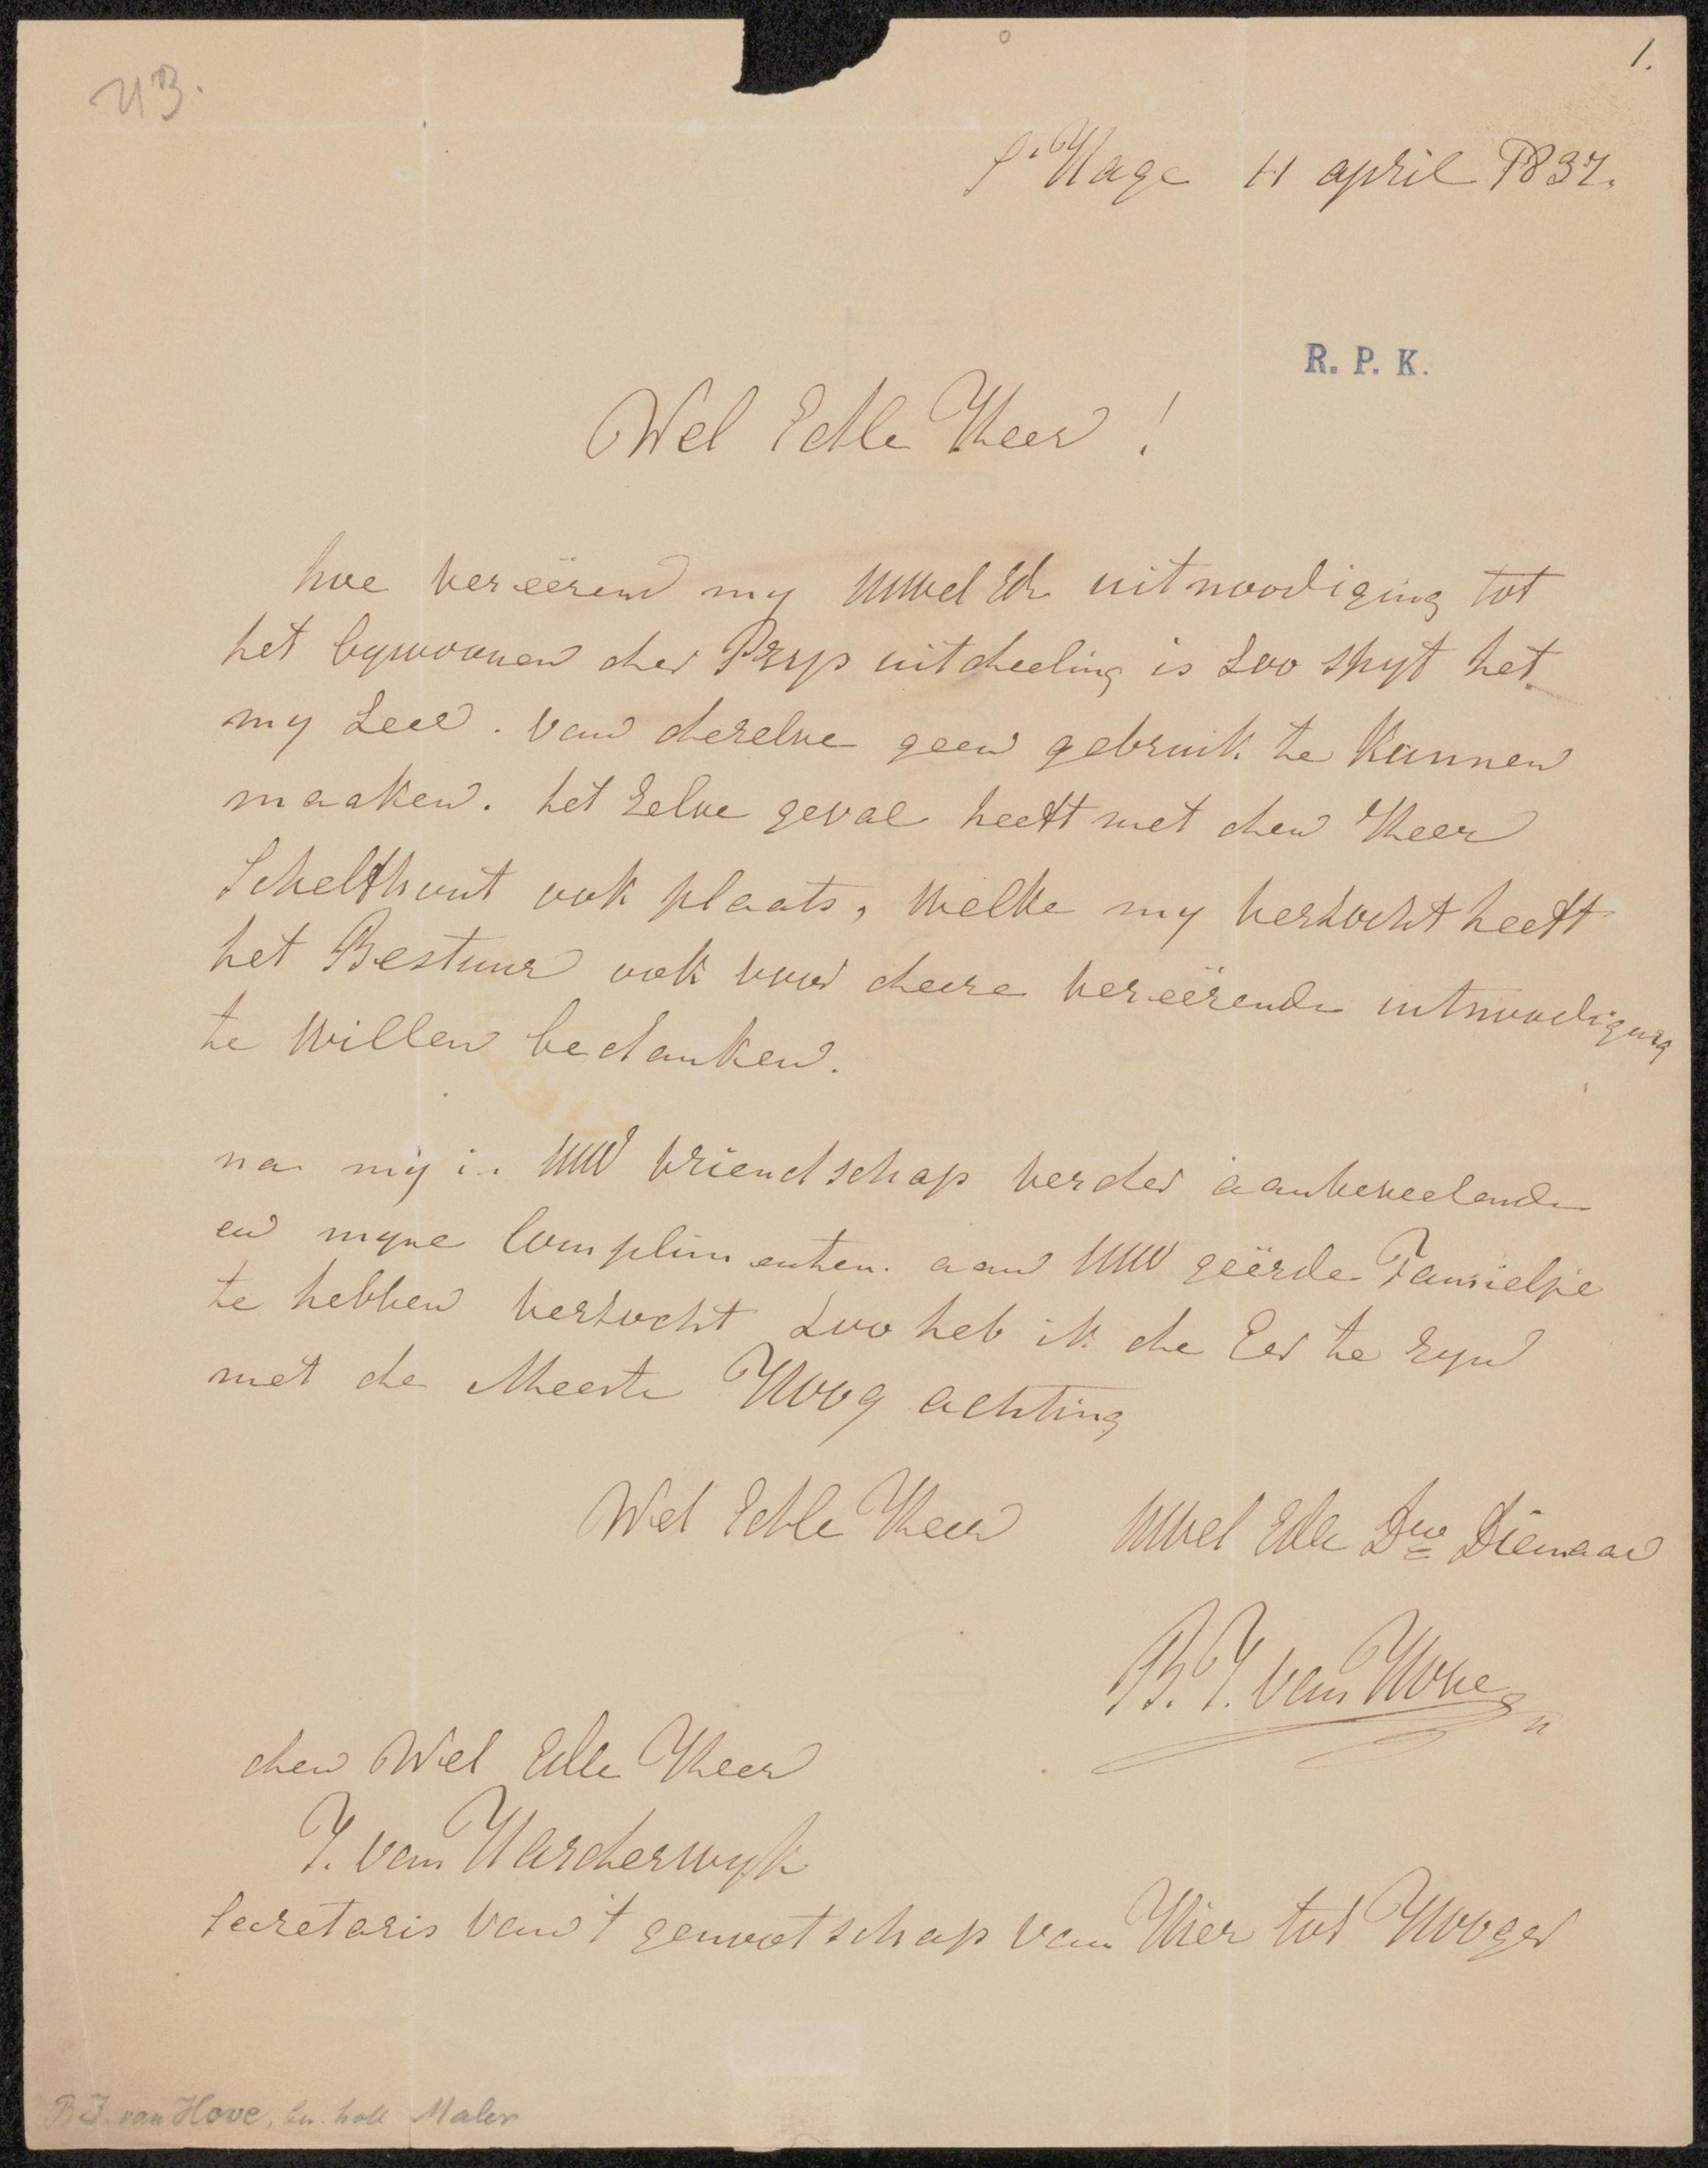 1.
S' Hage 11 april 1837.
R. P. K.
Wel Edle Heer !
hoe vereërend my UWel Ede uitnoodiging tot
het bywoonen der Prys uitdeeling is Zoo Spyt het
my Zeer. van dezelve geen gebruik te kunnen
maaken. het Zelve geval heeft met den Heer
Schelfhout ook plaats, welke my verzocht heeft
het Bestuur ook voor deeze vereërende uitnoodiging
te willen bedanken.
na my in UW vriendschap verder aanbeveelende
en myne Complimenten aan UW geërde Famielje
te hebben verzocht Zoo heb ik de Eer te Zyn
met de Meeste Hoog achting
Wel Edle Heer UWel Edle Dwe Dienaar
B. J. van Hove
den Wel Edle Heer
J. van Harderwyk
Secretaris van 't genootschap van Hier tot Hooger
B J. van Hove, holl Maler